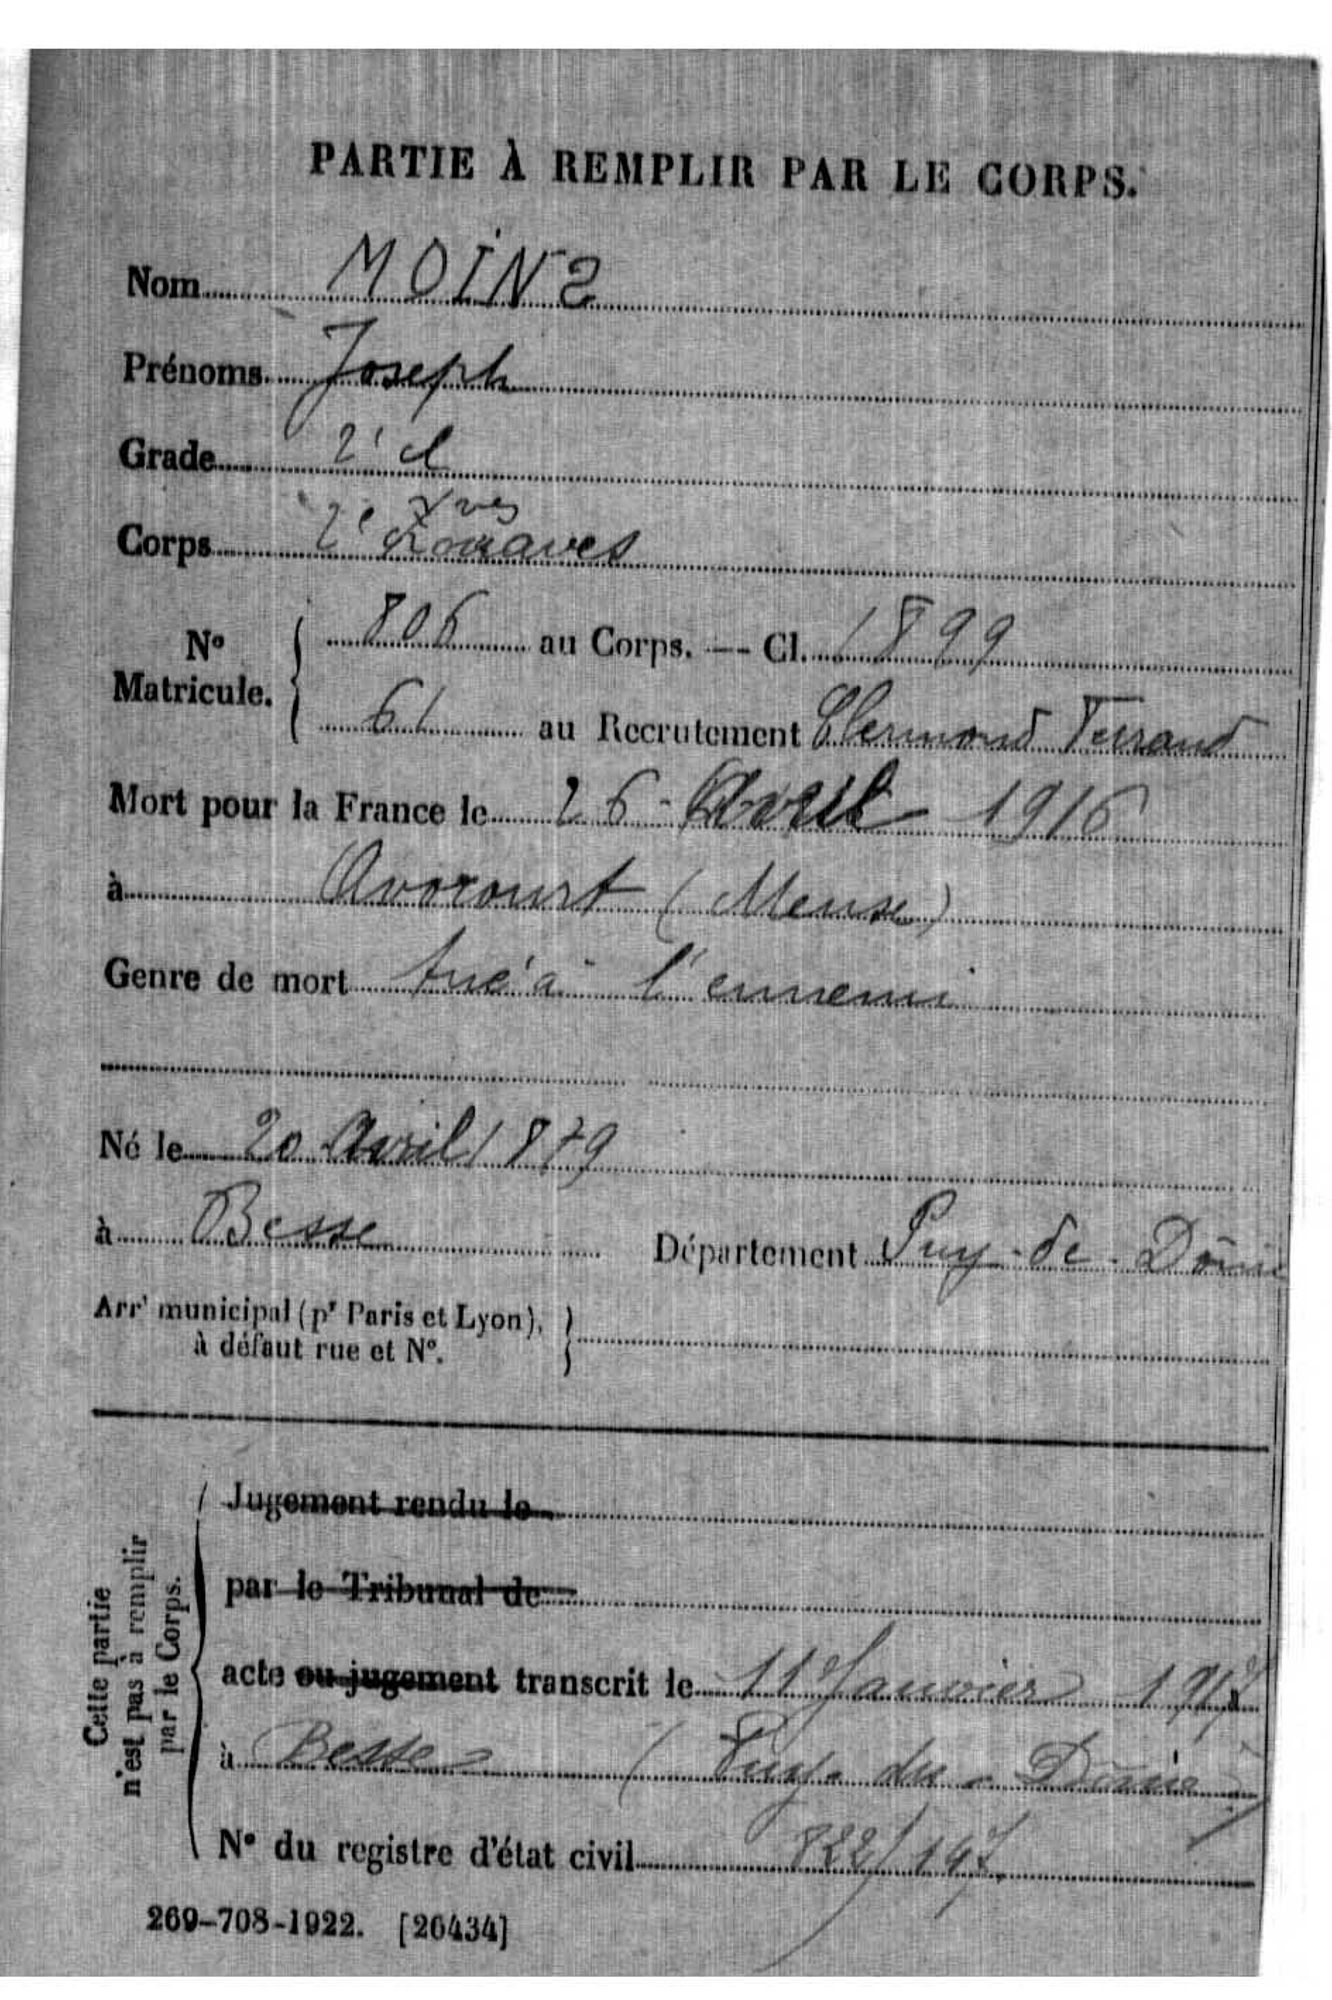 PARTIE À REMPLIR PAR LE CORPS.
Nom MOINS
Prénoms Joseph
Grade 2e cl
Corps 2e Zouaves
No Matricule. 806 au Corps. — Cl. 1899
61 au Recrutement Clermond Ferrand
Mort pour la France le 26 Avril 1916
à Avocourt (Meuse)
Genre de mort tué à l'ennemi
Né le 20 Avril 1879
à Besse Département Puy-de-Dôme
Arrt municipal (pr Paris et Lyon), à défaut rue et No.
Cette partie n'est pas à remplir par le Corps.
Jugement rendu le
par le Tribunal de
acte ou jugement transcrit le 11 Janvier 1917
à Besse (Puy-de-Dôme)
No du registre d'état civil 822/147
269-708-1922. [26434]